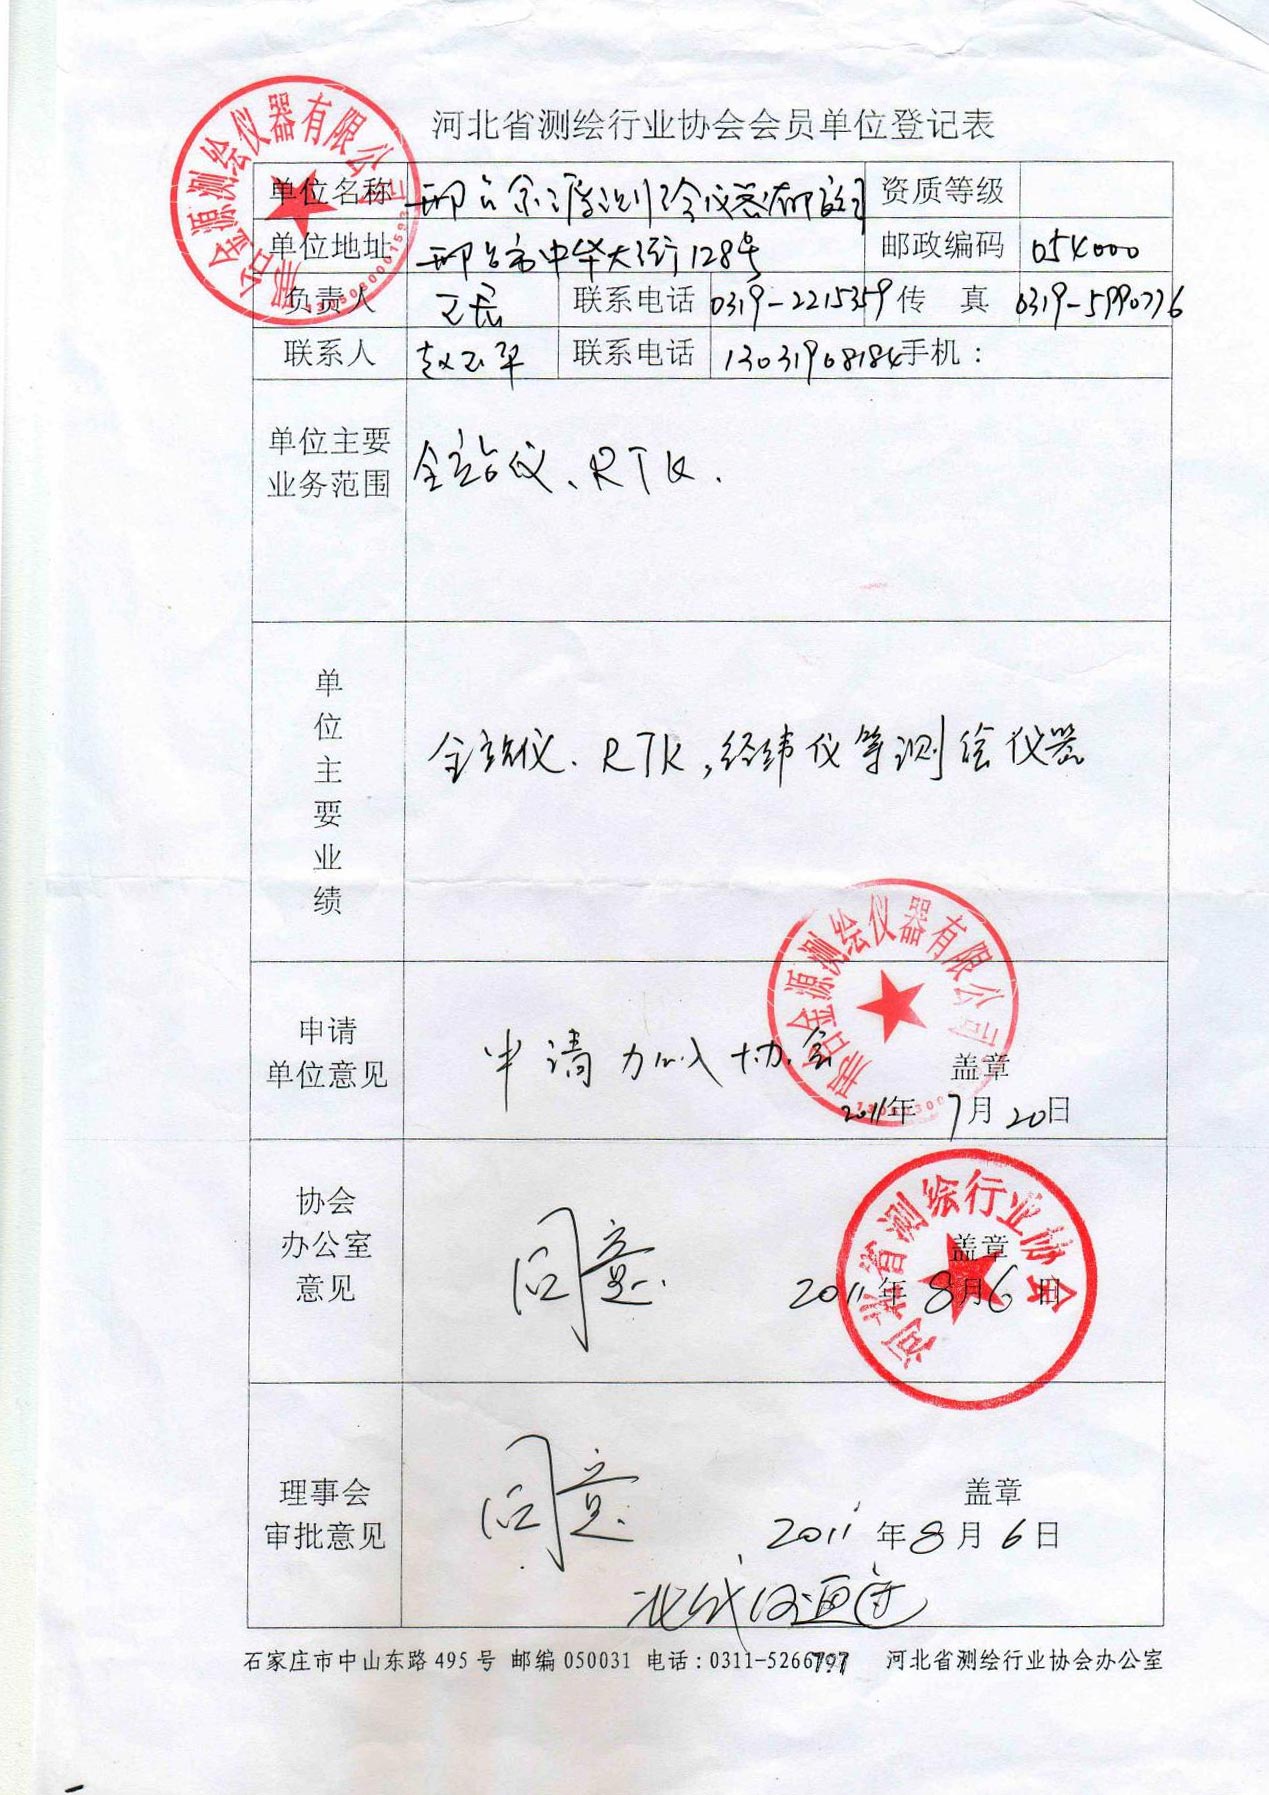 河北省测绘行业协会会员单位登记表
单位名称 邢台金源测绘仪器有限公司 资质等级
单位地址 邢台市中华大街128号 邮政编码 054000
负责人 联系电话 0319-2215359 传 真 0319-5990776
联系人 赵玉平 联系电话 13031908184 手机：
单位主要
业务范围
全站仪、RTK.
单位主要业绩
全站仪、RTK,经纬仪等测绘仪器
申请
单位意见
申请加入协会
盖章
2011年 7月 20日
协会
办公室
意见
同意.
盖章
2011年 8月6日
理事会
审批意见
同意.
盖章
2011年8月6日
石家庄市中山东路495号 邮编050031 电话：0311-5266797 河北省测绘行业协会办公室
邢台金源测绘仪器有限公司
邢台金源测绘仪器有限公司
河北省测绘行业协会